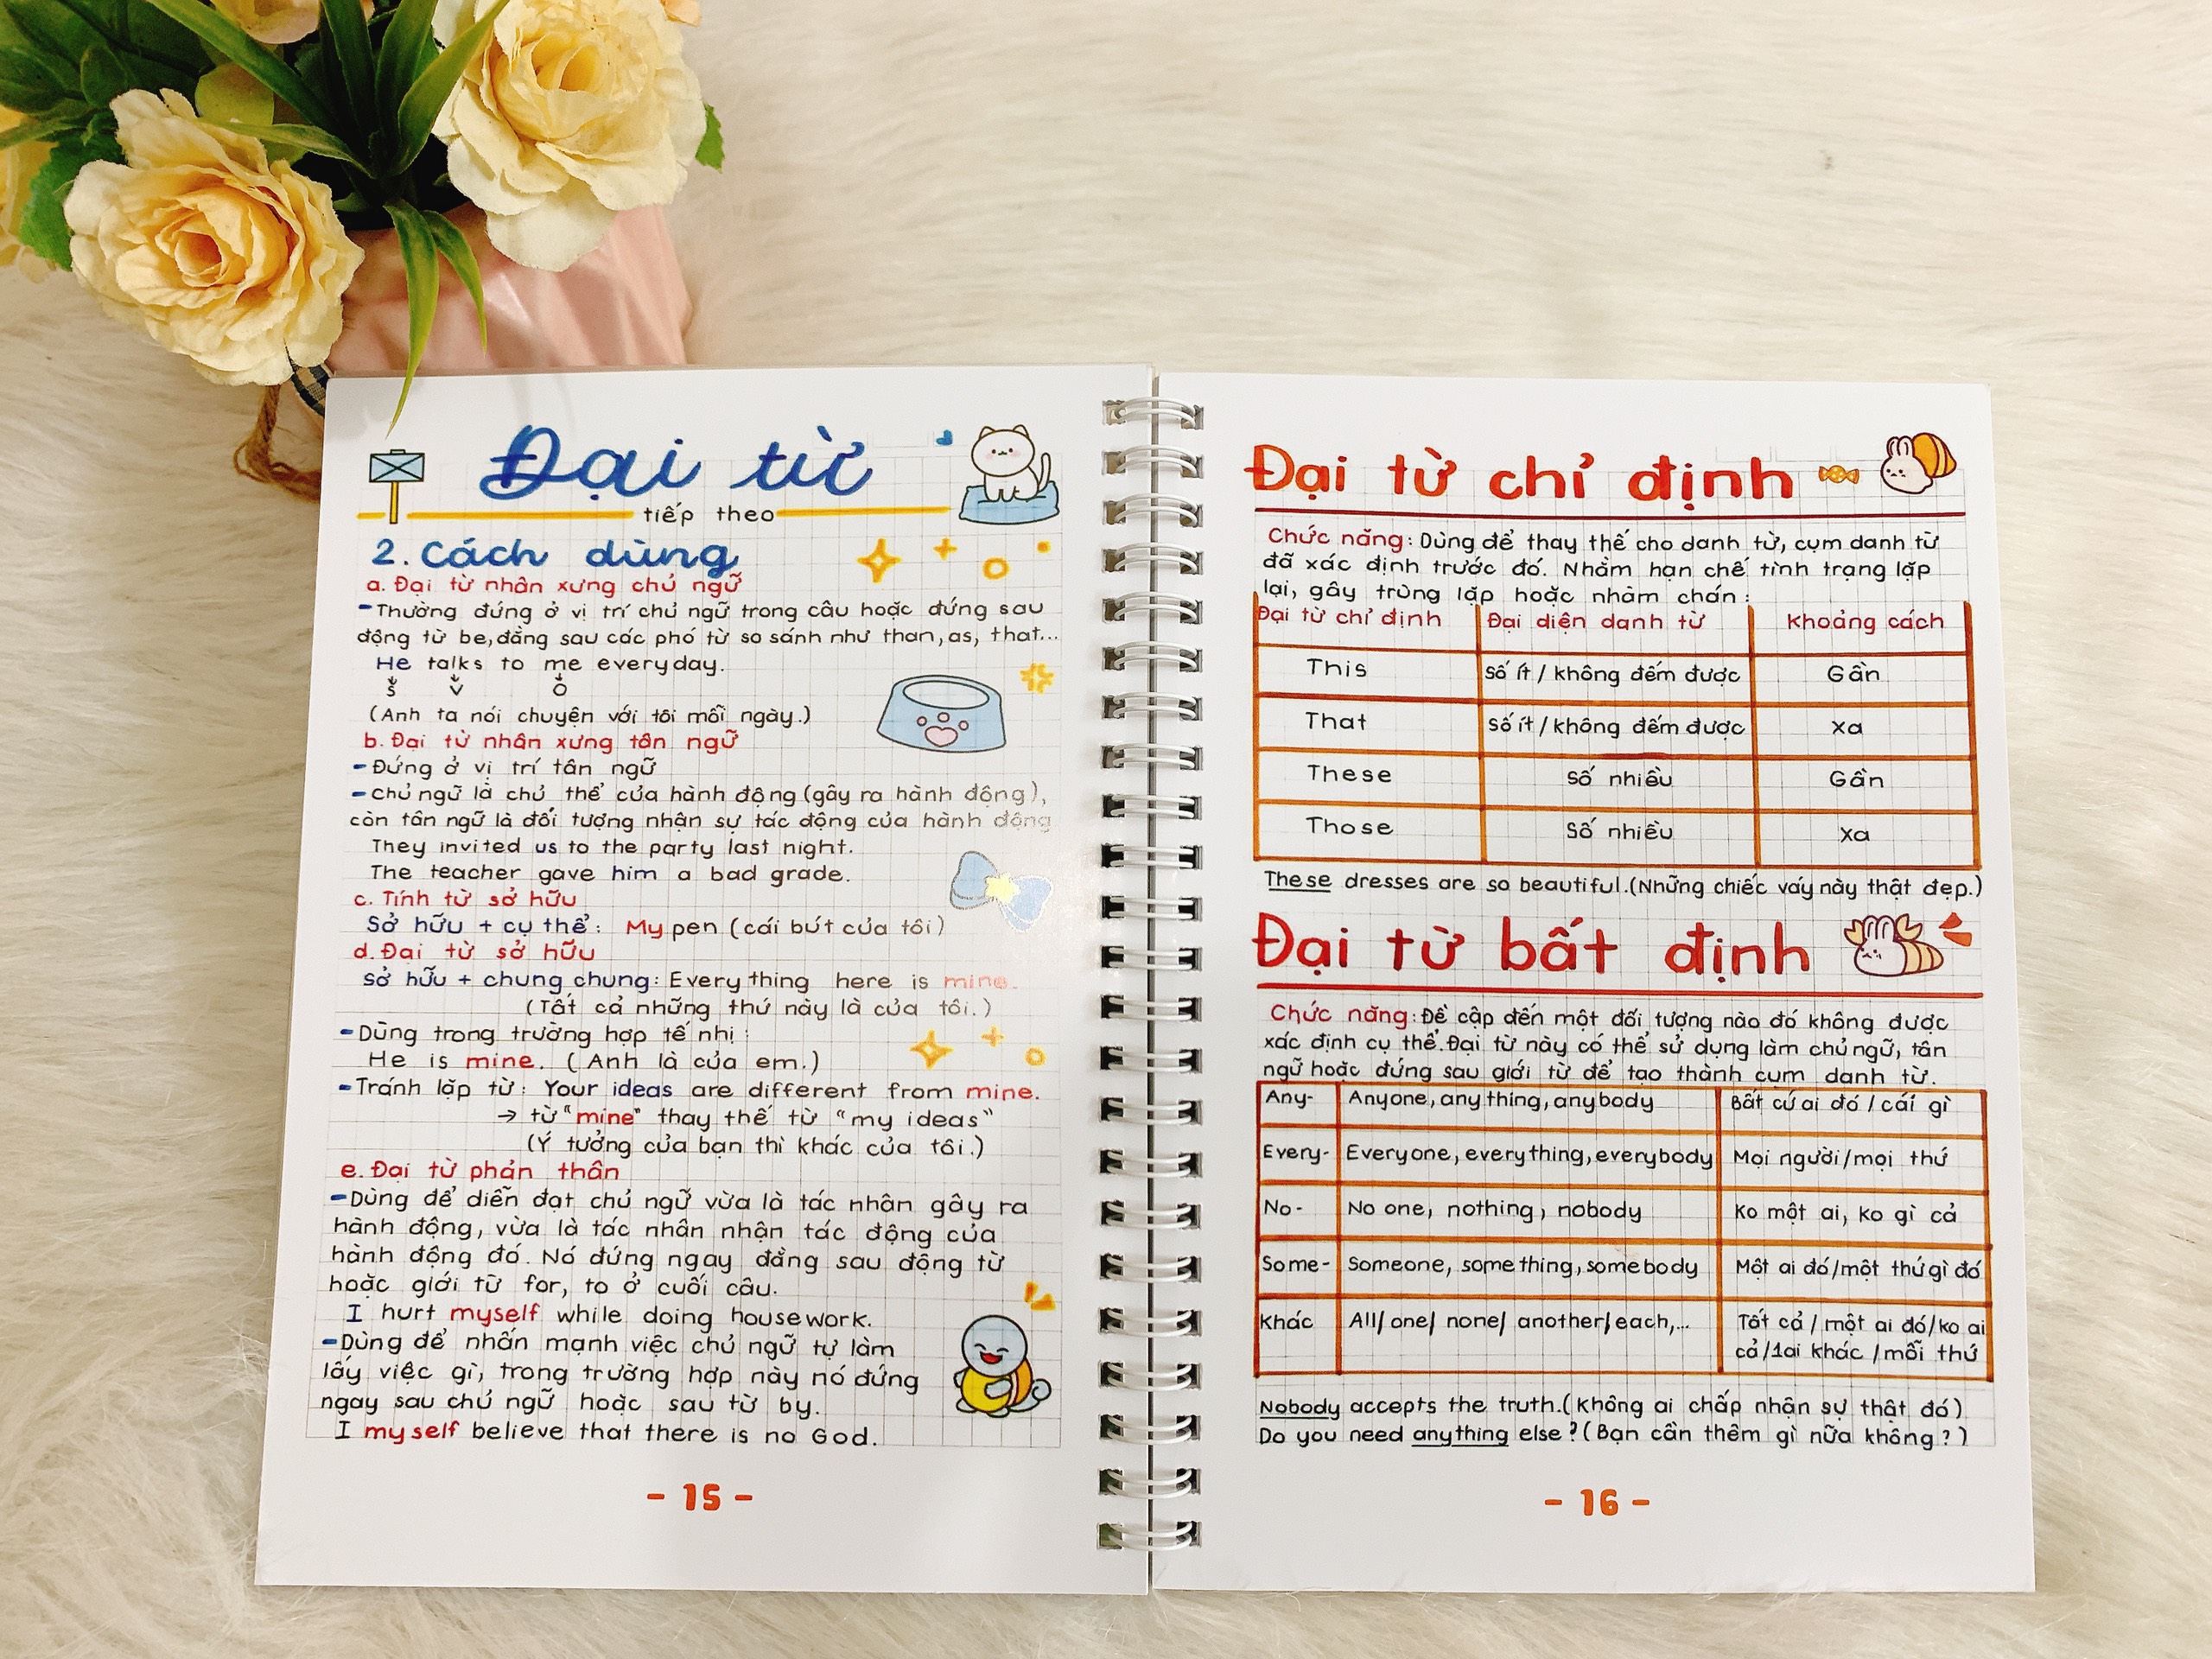 Đại từ
tiếp theo
2. Cách dùng
a. Đại từ nhân xưng chủ ngữ
- Thường đứng ở vị trí chủ ngữ trong câu hoặc đứng sau
động từ be, đằng sau các phó từ so sánh như than, as, that...
He talks to me everyday.
S V O
(Anh ta nói chuyện với tôi mỗi ngày.)
b. Đại từ nhân xưng tân ngữ
- Đứng ở vị trí tân ngữ
- Chủ ngữ là chủ thể của hành động (gây ra hành động),
còn tân ngữ là đối tượng nhận sự tác động của hành động
They invited us to the party last night.
The teacher gave him a bad grade.
c. Tính từ sở hữu
Sở hữu + cụ thể: My pen (cái bút của tôi)
d. Đại từ sở hữu
sở hữu + chung chung: Everything here is mine.
(Tất cả những thứ này là của tôi.)
- Dùng trong trường hợp tế nhị:
He is mine. (Anh là của em.)
- Tránh lặp từ: Your ideas are different from mine.
→ từ "mine" thay thế từ "my ideas"
(Ý tưởng của bạn thì khác của tôi.)
e. Đại từ phản thân
- Dùng để diễn đạt chủ ngữ vừa là tác nhân gây ra
hành động, vừa là tác nhân nhận tác động của
hành động đó. Nó đứng ngay đằng sau động từ
hoặc giới từ for, to ở cuối câu.
I hurt myself while doing housework.
- Dùng để nhấn mạnh việc chủ ngữ tự làm
lấy việc gì, trong trường hợp này nó đứng
ngay sau chủ ngữ hoặc sau từ by.
I myself believe that there is no God.
- 15 -
Đại từ chỉ định
Chức năng: Dùng để thay thế cho danh từ, cụm danh từ
đã xác định trước đó. Nhằm hạn chế tình trạng lặp
lại, gây trùng lặp hoặc nhàm chán:
Đại từ chỉ định Đại diện danh từ Khoảng cách
This Số ít / không đếm được Gần
That Số ít / không đếm được xa
These Số nhiều Gần
Those Số nhiều xa
These dresses are so beautiful. (Những chiếc váy này thật đẹp.)
Đại từ bất định
Chức năng: Đề cập đến một đối tượng nào đó không được
xác định cụ thể. Đại từ này có thể sử dụng làm chủ ngữ, tân
ngữ hoặc đứng sau giới từ để tạo thành cụm danh từ.
Any- Anyone, anything, anybody Bất cứ ai đó / cái gì
Every- Everyone, everything, everybody Mọi người/mọi thứ
No- No one, nothing, nobody Ko một ai, ko gì cả
Some- Someone, something, somebody Một ai đó/một thứ gì đó
Khác All/ one/ none/ another/ each,... Tất cả / một ai đó/ko ai
cả/1 ai khác / mỗi thứ
Nobody accepts the truth. (Không ai chấp nhận sự thật đó)
Do you need anything else? (Bạn cần thêm gì nữa không?)
- 16 -